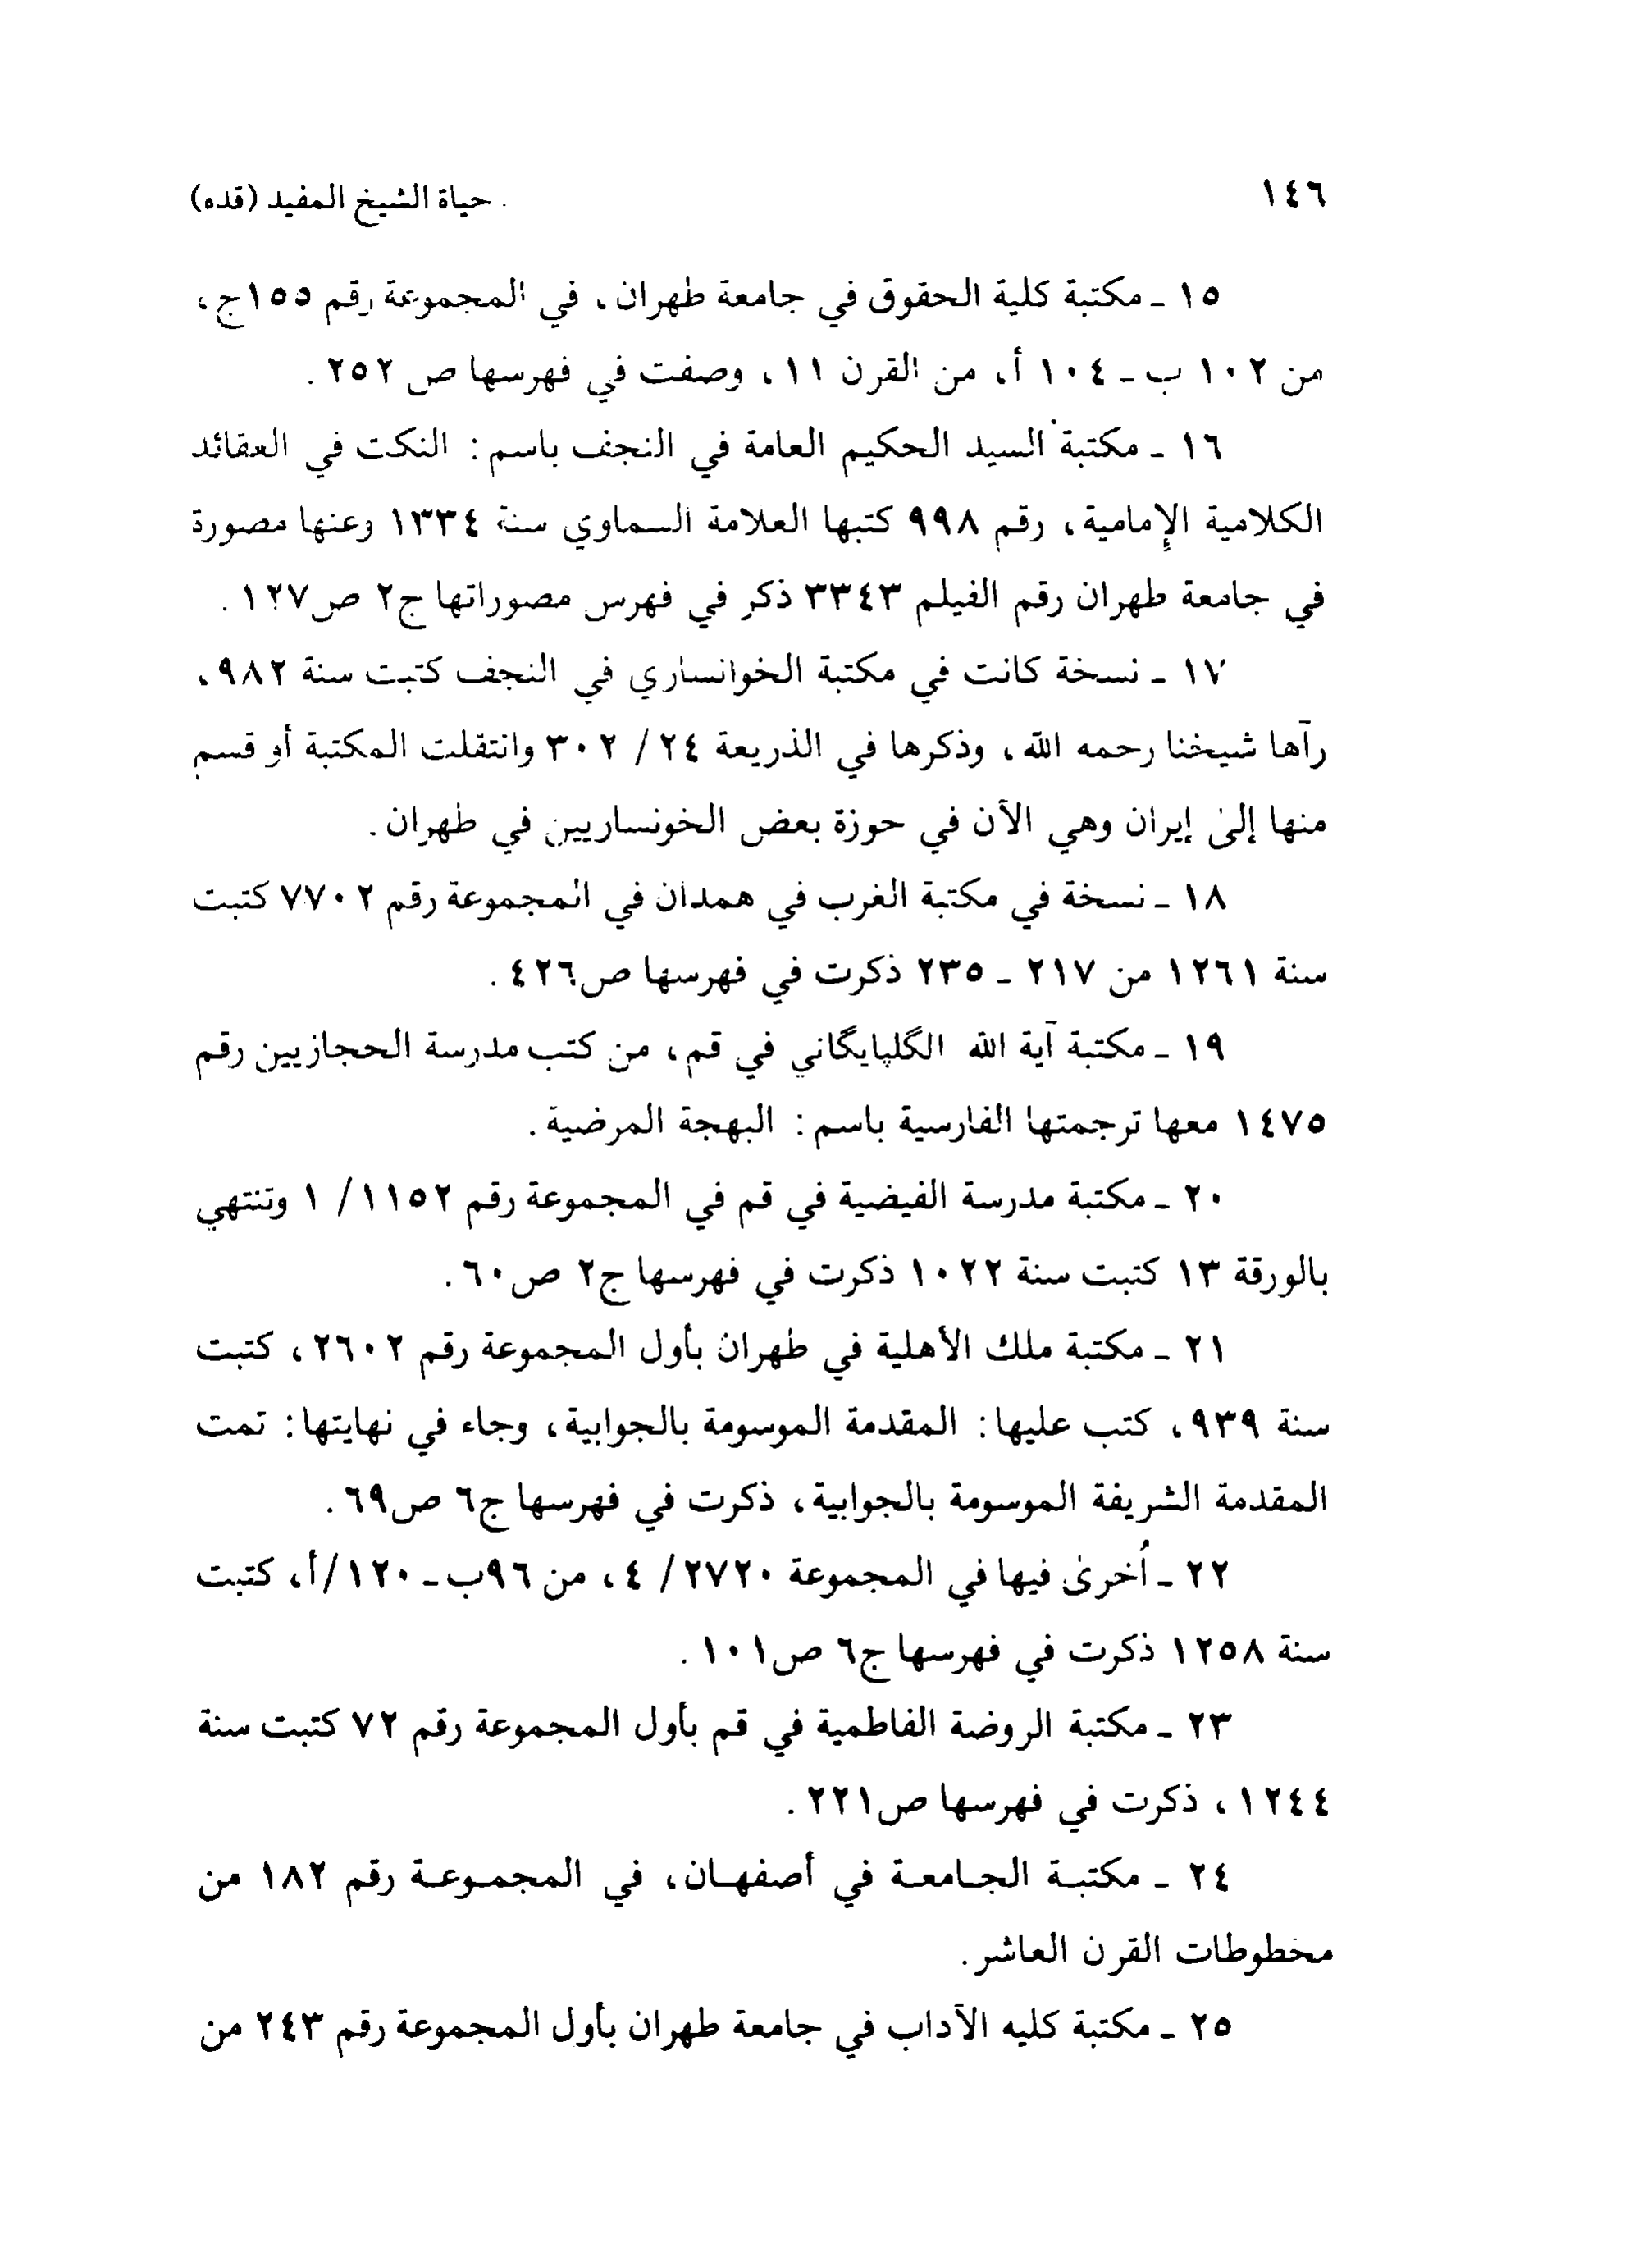 ١٤٦ . حياة الشيخ المفيد (قده)
١٥ ـ مكتبة كلية الحقوق في جامعة طهران، في المجموعة رقم ١٥٥ج،
من ١٠٢ ب ـ ١٠٤ أ، من القرن ١١، وصفت في فهرسها ص ٢٥٢ .
١٦ ـ مكتبة السيد الحكيم العامة في النجف باسم : النكت في العقائد
الكلامية الإمامية، رقم ٩٩٨ كتبها العلامة السماوي سنة ١٣٣٤ وعنها مصورة
في جامعة طهران رقم الفيلم ٣٣٤٣ ذكر في فهرس مصوراتها ج٢ ص١٢٧ .
١٧ ـ نسخة كانت في مكتبة الخوانساري في النجف كتبت سنة ٩٨٢،
رآها شيخنا رحمه الله، وذكرها في الذريعة ٢٤ / ٣٠٢ وانتقلت المكتبة أو قسم
منها إلىٰ إيران وهي الآن في حوزة بعض الخونساريين في طهران .
١٨ ـ نسخة في مكتبة الغرب في همدان في المجموعة رقم ٧٧٠٢ كتبت
سنة ١٢٦١ من ٢١٧ ـ ٢٣٥ ذكرت في فهرسها ص٤٢٦ .
١٩ ـ مكتبة آية الله الگلپايگاني في قم، من كتب مدرسة الحجازيين رقم
١٤٧٥ معها ترجمتها الفارسية باسم : البهجة المرضية .
٢٠ ـ مكتبة مدرسة الفيضية في قم في المجموعة رقم ١١٥٢/ ١ وتنتهي
بالورقة ١٣ كتبت سنة ١٠٢٢ ذكرت في فهرسها ج٢ ص٦٠ .
٢١ ـ مكتبة ملك الأهلية في طهران بأول المجموعة رقم ٢٦٠٢، كتبت
سنة ٩٣٩، كتب عليها : المقدمة الموسومة بالجوابية، وجاء في نهايتها : تمت
المقدمة الشريفة الموسومة بالجوابية، ذكرت في فهرسها ج٦ ص٦٩ .
٢٢ ـ أُخرىٰ فيها في المجموعة ٢٧٢٠ / ٤، من ٩٦ب ـ ١٢٠/أ، كتبت
سنة ١٢٥٨ ذكرت في فهرسها ج٦ ص١٠١ .
٢٣ ـ مكتبة الروضة الفاطمية في قم بأول المجموعة رقم ٧٢ كتبت سنة
١٢٤٤، ذكرت في فهرسها ص٢٢١ .
٢٤ ـ مكتبـة الجـامعـة في أصفهـان، في المجمـوعـة رقم ١٨٢ من
مخطوطات القرن العاشر .
٢٥ ـ مكتبة كليه الآداب في جامعة طهران بأول المجموعة رقم ٢٤٣ من